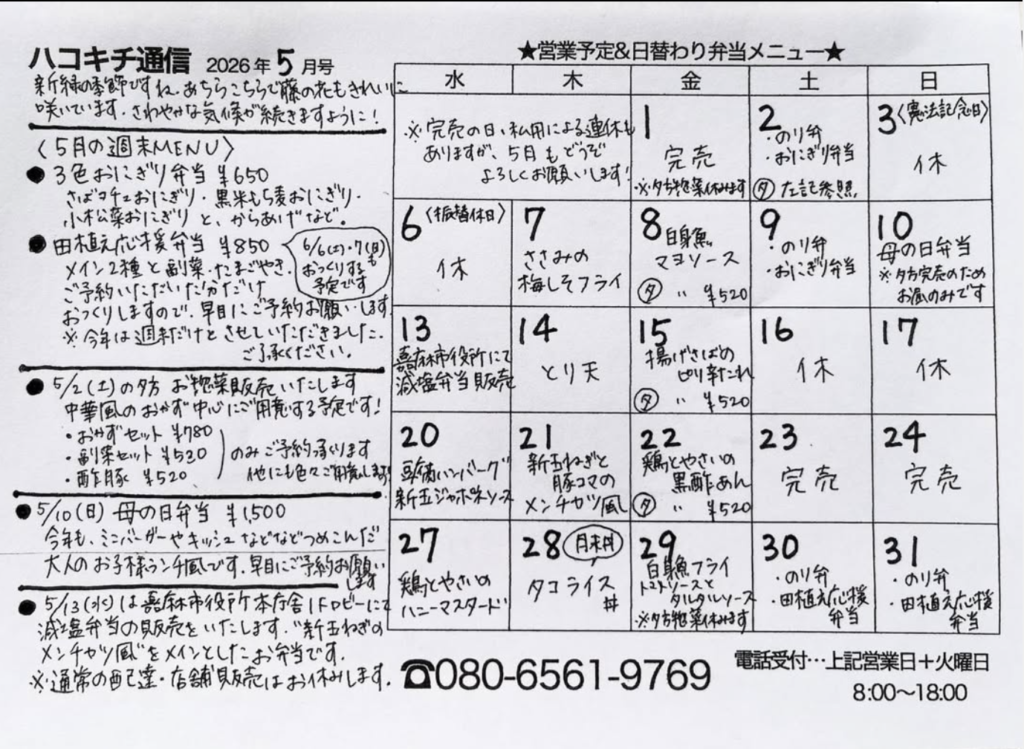 ハコキチ通信 2026年5月号
新緑の季節ですね。あちらこちらで藤の花もきれいに
咲いています。さわやかな気候が続きますように!
〈5月の週末MENU〉
● 3色おにぎり弁当 ¥650
さばコチュおにぎり・黒米もち麦おにぎり・
小松菜おにぎり と、からあげなど。
● 田植え応援弁当 ¥850
メイン2種と副菜・たまごやき。
ご予約いただいた分だけ
おつくりしますので、早目にご予約お願いします
※今年は週末だけとさせていただきました。
ご了承ください。
6/6(土)・7(日)も
おつくりする
予定です
● 5/2(土)の夕方 お惣菜販売いたします
中華風のおかず中心にご用意する予定です!
・おかずセット ¥780
・副菜セット ¥520
・酢豚 ¥520
のみご予約承ります
他にも色々ご用意します
● 5/10(日) 母の日弁当 ¥1,500
今年も、ミニバーガーやキッシュなどなどつめこんだ
大人のお子様ランチ風です。早目にご予約お願い
します
● 5/13(水)は嘉麻市役所本庁舎1Fロビーにて
減塩弁当の販売をいたします。"新玉ねぎの
メンチカツ風"をメインとしたお弁当です。
※通常の配達・店舗販売はお休みします。
★営業予定&日替わり弁当メニュー★
水 木 金 土 日
※完売の日、私用による連休も
ありますが、5月もどうぞ
よろしくお願いします!
1
完売
※夕方惣菜休みます
2
・のり弁
・おにぎり弁当
夕 左記参照
3〈憲法記念日〉
休
6〈振替休日〉
休
7
ささみの
梅しそフライ
8 白身魚
マヨソース
夕 〃 ¥520
9
・のり弁
・おにぎり弁当
10
母の日弁当
※夕方完売のため
お昼のみです
13
嘉麻市役所にて
減塩弁当販売
14
とり天
15
揚げさばの
ピリ辛たれ
夕 〃 ¥520
16
休
17
休
20
豆腐ハンバーグ
新玉ジャポネソース
21
新玉ねぎと
豚コマの
メンチカツ風
22
鶏とやさいの
黒酢あん
夕 〃 ¥520
23
完売
24
完売
27
鶏とやさいの
ハニーマスタード
28 月末丼
タコライス
丼
29
白身魚フライ
トマトソースと
タルタルソース
※夕方惣菜休みます
30
・のり弁
・田植え応援
弁当
31
・のり弁
・田植え応援
弁当
☎080-6561-9769
電話受付…上記営業日+火曜日
8:00〜18:00